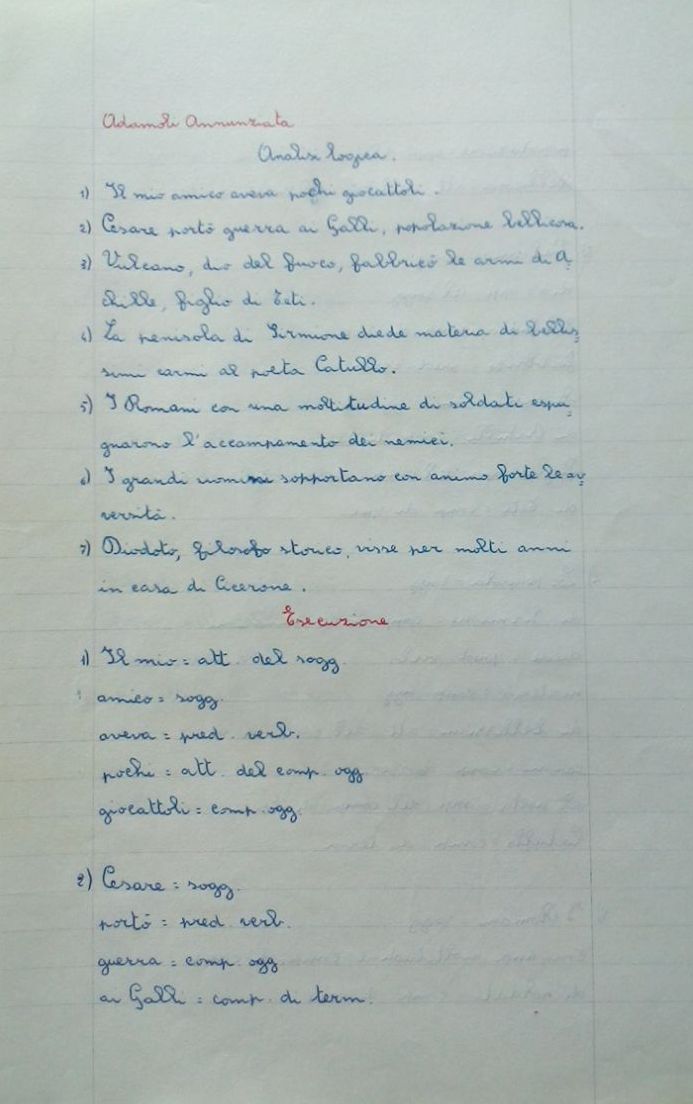 Adamoli Annunziata
Analisi logica.
1) Il mio amico aveva pochi giocattoli.
2) Cesare portò guerra ai Galli, popolazione bellicosa.
3) Vulcano, dio del fuoco, fabbricò le armi di A_
chille, figlio di Teti.
4) La penisola di Sirmione diede materia di bellis_
simi carmi al poeta Catullo.
5) I Romani con una moltitudine di soldati espu_
gnarono l'accampamento dei nemici.
6) I grandi uomini sopportano con animo forte le av_
versità.
7) Diodoto, filosofo stoico, visse per molti anni
in casa di Cicerone.
Esecuzione
1) Il mio = att. del sogg.
amico = sogg.
aveva = pred. verb.
pochi = att. del comp. ogg
giocattoli = comp. ogg.
2) Cesare = sogg.
portò = pred. verb.
guerra = comp. ogg
ai Galli = comp. di term.